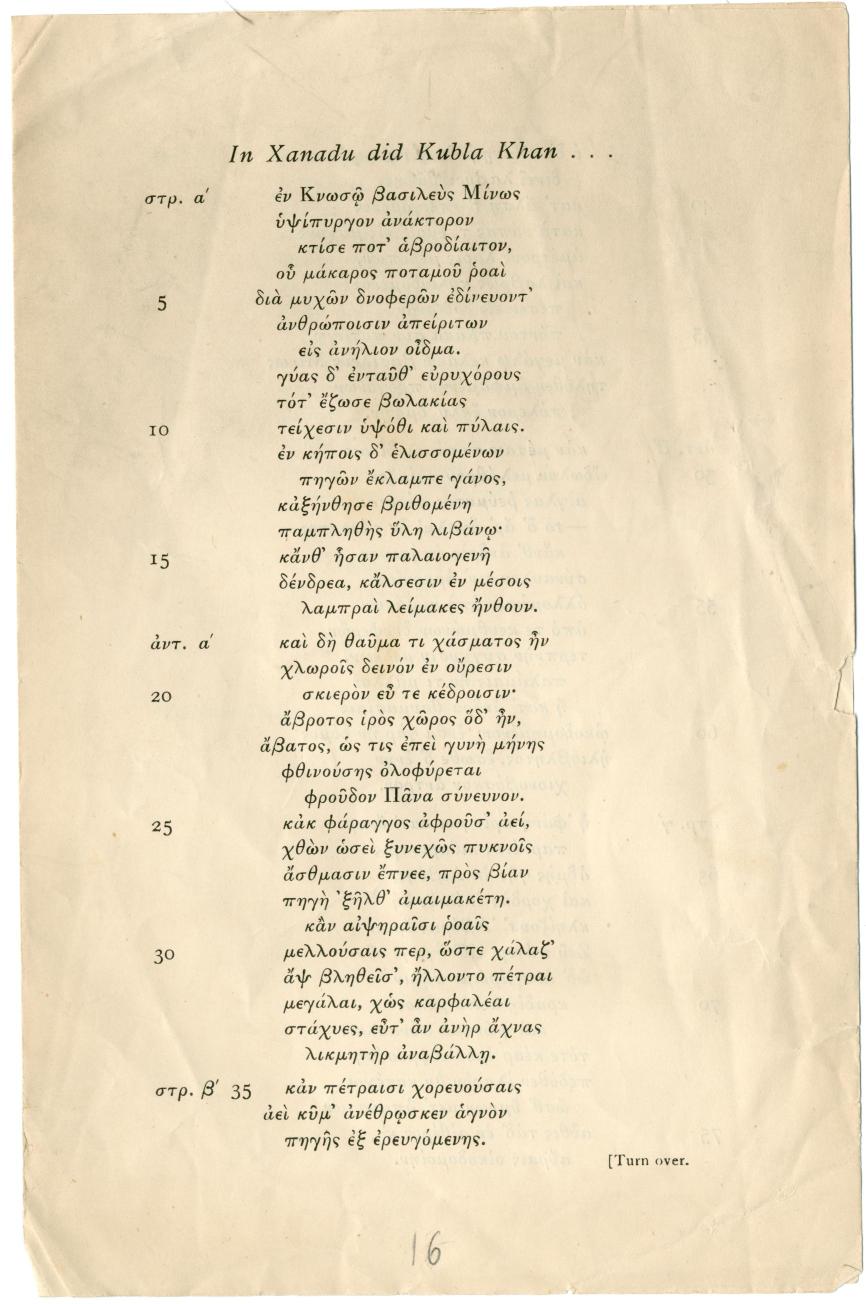 In Xanadu did Kubla Khan . . .
στρ. α′ ἐν Κνωσῷ βασιλεὺς Μίνως
ὑψίπυργον ἀνάκτορον
κτίσε ποτ’ ἁβροδίαιτον,
οὗ μάκαρος ποταμοῦ ῥοαὶ
5 διὰ μυχῶν δνοφερῶν ἐδίνευοντ’
ἀνθρώποισιν ἀπείριτων
εἰς ἀνήλιον οἶδμα.
γύας δ’ ἐνταῦθ’ εὐρυχόρους
τότ’ ἔζωσε βωλακίας
10 τείχεσιν ὑψόθι καὶ πύλαις.
ἐν κήποις δ’ ἑλισσομένων
πηγῶν ἔκλαμπε γάνος,
κἀξήνθησε βριθομένη
παμπληθὴς ὕλη λιβάνῳ·
15 κἄνθ’ ἦσαν παλαιογενῆ
δένδρεα, κἄλσεσιν ἐν μέσοις
λαμπραὶ λείμακες ἤνθουν.
ἀντ. α′ καὶ δὴ θαῦμα τι χάσματος ἦν
χλωροῖς δεινόν ἐν οὔρεσιν
20 σκιερὸν εὖ τε κέδροισιν·
ἄβροτος ἱρὸς χῶρος ὅδ’ ἦν,
ἄβατος, ὡς τις ἐπεὶ γυνὴ μήνης
φθινούσης ὀλοφύρεται
φροῦδον Πᾶνα σύνευνον.
25 κἀκ φάραγγος ἀφροῦσ’ ἀεί,
χθὼν ὡσεὶ ξυνεχῶς πυκνοῖς
ἄσθμασιν ἔπνεε, πρὸς βίαν
πηγὴ ’ξῆλθ’ ἀμαιμακέτη.
κἂν αἰψηραῖσι ῥοαῖς
30 μελλούσαις περ, ὥστε χάλαζ’
ἄψ βληθεῖσ’, ἤλλοντο πέτραι
μεγάλαι, χὡς καρφαλέαι
στάχυες, εὖτ’ ἂν ἀνὴρ ἄχνας
λικμητὴρ ἀναβάλλῃ.
στρ. β′ 35 κἀν πέτραισι χορευούσαις
ἀεὶ κῦμ’ ἀνέθρῳσκεν ἁγνὸν
πηγῆς ἐξ ἐρευγόμενης.
[Turn over.
16